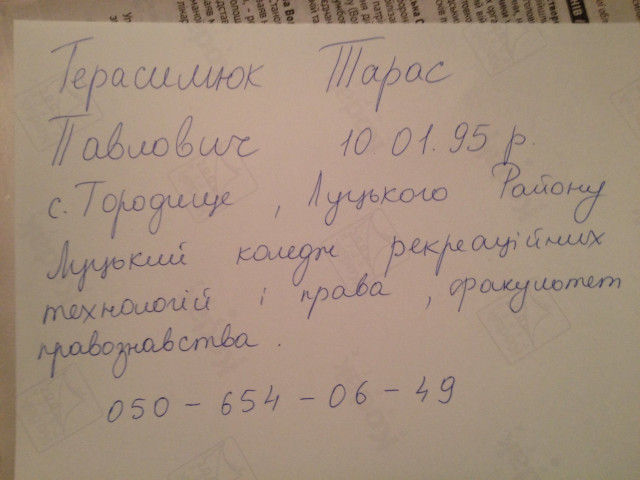 Герасимюк Тарас
Павлович 10 01.95 р.
с. Городище, Луцького Району
Луцький коледж рекреаційних
технологій і права, факультет
правознавства.
050-654-06-49